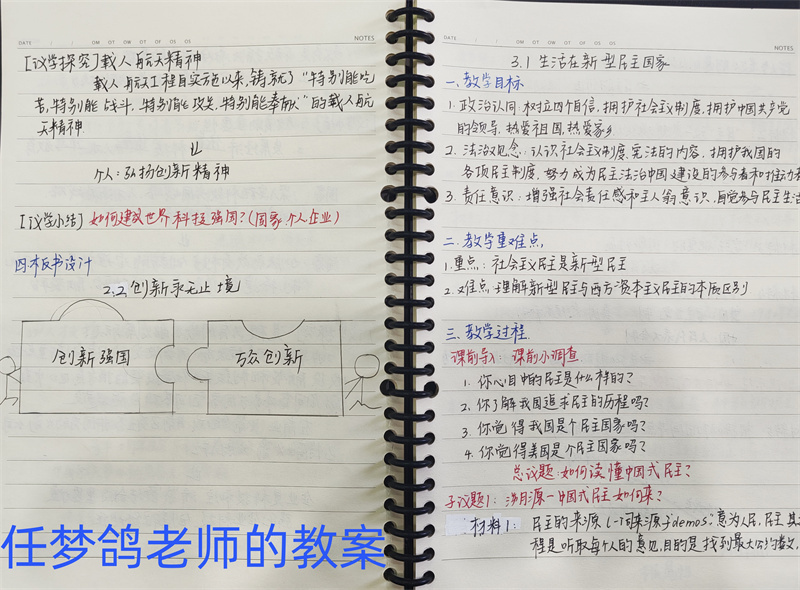 DATE OM OT OW OT OF OS OS NOTES
[议学探究]载人航天精神
载人航天工程自实施以来,铸就了“特别能吃
苦,特别能战斗,特别能攻关,特别能奉献”的载人航
天精神
个人:弘扬创新精神
[议学小结]如何建设世界科技强国?(国家、个人、企业)
四、板书设计
2.2创新永无止境
创新强国
万众创新
任梦鸽老师的教案
DATE OM OT OW OT OF OS OS NOTES
3.1生活在新型民主国家
一、教学目标
1.政治认同:树立四个自信,拥护社会主义制度,拥护中国共产党
的领导,热爱祖国,热爱家乡
2.法治观念:认识社会主义制度,宪法的内容,拥护我国的
各项民主制度,努力成为民主法治中国建设的参与者和推动力
3.责任意识:增强社会责任感和主人翁意识,自觉参与民主生活
二、教学重难点
1.重点:社会主义民主是新型民主
2.难点:理解新型民主与西方资本主义民主的本质区别
三、教学过程
课前导入:课前小调查
1.你心目中的民主是什么样的?
2.你了解我国追求民主的历程吗?
3.你觉得我国是个民主国家吗?
4.你觉得美国是个民主国家吗?
总议题:如何读懂中国式民主?
子议题1:溯源-中国式民主如何来?
材料1:民主的来源(一词来源于“demos”意为人民,民主其
程是听取每个人的意见,目的是找到最大公约数,